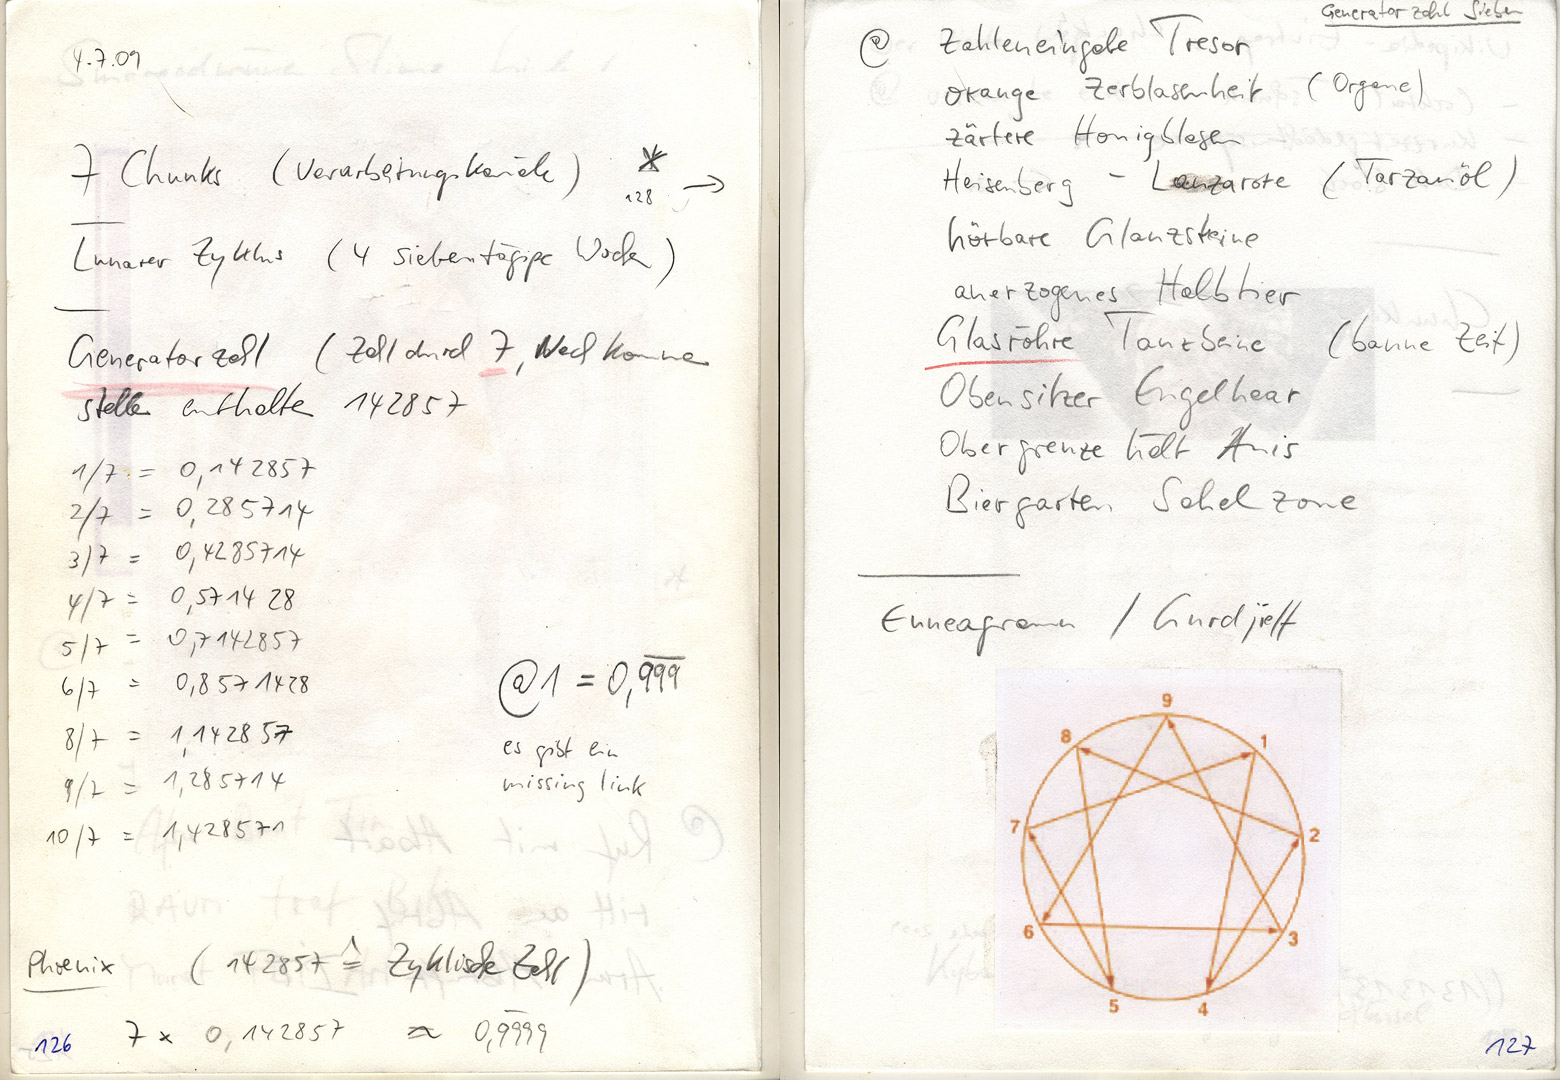 4.7.09
7 Chunks (Verarbeitungskanäle) * →
128
Lunarer Zyklus (4 siebentägige Wochen)
Generatorzahl (Zahl durch 7, Nachkomma
stellen enthalten 142857
1/7 = 0,142857
2/7 = 0,285714
3/7 = 0,4285714
4/7 = 0,571428
5/7 = 0,7142857
6/7 = 0,8571428
8/7 = 1,142857
9/7 = 1,285714
10/7 = 1,428571
@ 1 = 0,999
es gibt ein
missing link
Phoenix (142857 ≙ Zyklische Zahl)
7 x 0,142857 ≈ 0,9999
126
Generatorzahl Sieben
@ Zahleneingabe Tresor
orange Zerblasenheit (Organe)
zärtere Honigblasen
Heisenberg - Lanzarote (Tarzanöl)
hörbare Glanzsteine
anerzogenes Halbtier
Glasröhre Tanzbeine (banne Zeit)
Obensitzer Engelhaar
Obergrenze hält Anis
Biergarten Sahelzone
Enneagramm / Gurdjieff
9
8 1
7 2
6 3
5 4
127